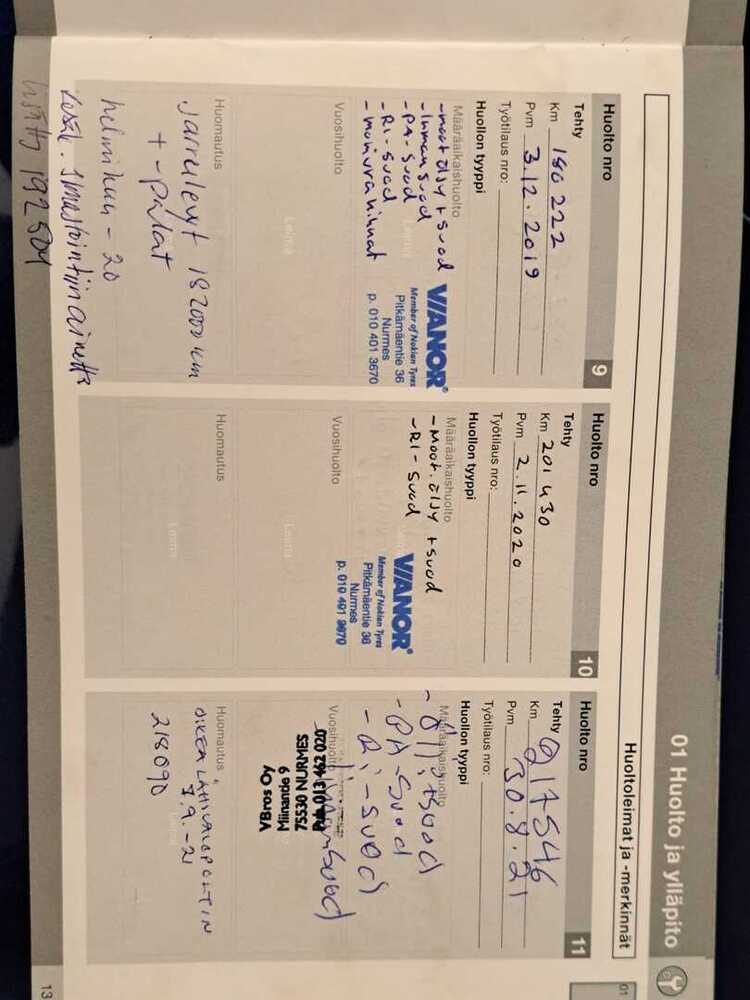 01 Huolto ja ylläpito
Huoltoleimat ja -merkinnät
Huolto nro 9
Tehty
Km 180 222
Pvm 3.12.2019
Työtilaus nro:
Huollon tyyppi
Määräaikaishuolto
- moot.öljy + suod
- ilman suod
- PA-Suod
- RI-Suod
VIANOR
Member of Nokian Tyres
Pitkämäentie 36
Nurmes
p. 010 401 3670
Vuosihuolto
Leima
Huomautus
Jarrulevyt 182000 km
+ -palat
helmikuu -20
lisätty 192501
Huolto nro 10
Tehty
Km 201430
Pvm 2.11.2020
Työtilaus nro:
Huollon tyyppi
Määräaikaishuolto
- Moot.öljy + suod
- RI-Suod
VIANOR
Member of Nokian Tyres
Pitkämäentie 36
Nurmes
p. 010 401 3670
Vuosihuolto
Leima
Huomautus
Leima
Huolto nro 11
Tehty
Km 217546
Pvm 30.8.21
Työtilaus nro:
Huollon tyyppi
Määräaikaishuolto
- Öljyt+suod
- PA-Suod
- Ri-suod
Vuosihuolto
Puh. 013 462 020
75530 NURMES
VBros Oy
Huomautus
OIKEA LÄHIVALOPOLTIN
7.9.-21
218090
01
13